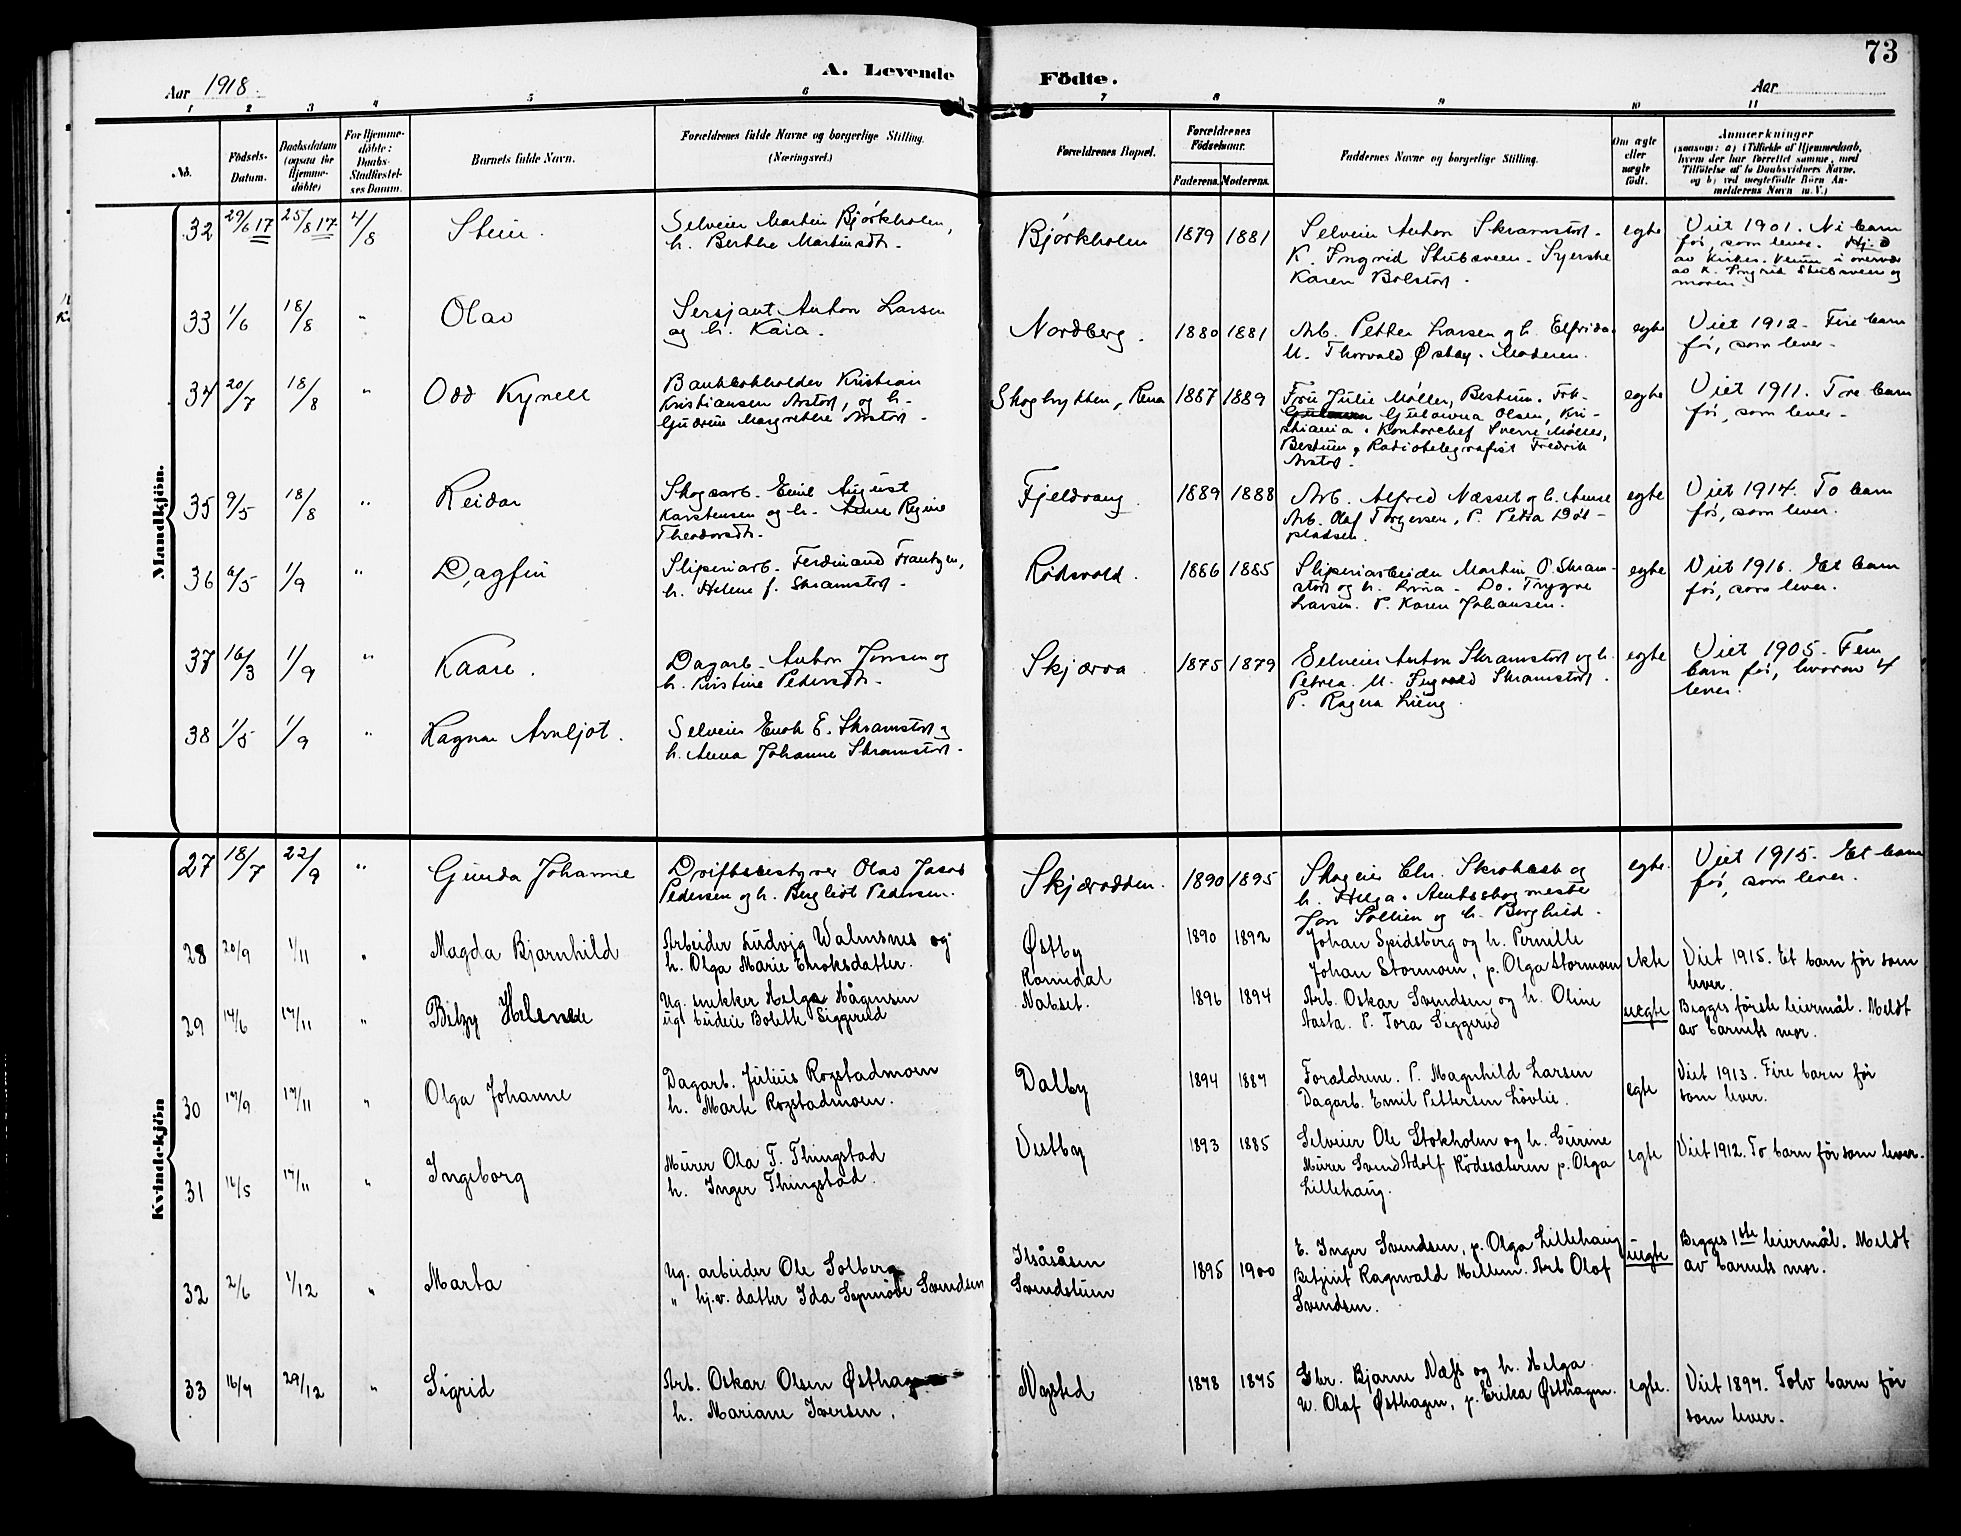 73
A. Levende Födte.
Aar 1918.
Aar
1 2 3 4 5 6 7 8 9 10 11
No.
Födsels-Datum.
Daabsdatum (ogsaa for Hjemme-döbte)
For Hjemme-döbte: Daabs-Stadfæstelses Datum.
Barnets fulde Navn.
Forældrenes fulde Navne og borgerlige Stilling. (Næringsvei.)
Forældrenes Bopæl.
Forældrenes Födselsaar.
Faderens. Moderens.
Faddernes Navne og borgerlige Stilling.
Om ægte eller uægte födt.
Anmærkninger
(saasom: a) i Tilfælde af Hjemmedaab, hvem der har forrettet samme, med Tilföielse af to Daabsvidners Navne, og b) ved uægtefödte Börn Anmelderens Navn m. V.)
Mandkjön.
32 29/6 17 25/8 17 4/8 Stein.
Selveier Martin Bjørkholen,
h. Berthe Martinsdtr.
Bjørkholen 1879 1881
Selveier Anton Skramstad.
K. Ingrid Stubsveen. Syerske
Karen Bolstad.
egte
Viet 1901. Ni barn
før, som lever. Hj. d
av Kirkes. Venum i overvær
av K. Ingrid Stubsveen og
moren.
33 1/6 18/8 " Olav
Sersjant Anton Larsen
og h. Kaia.
Nordberg. 1880 1881
Arb. Petter Larsen og h. Elfrida.
U. Thorvald Østby. Moderen.
egte
Viet 1912. Fire barn
før, som lever.
34 20/7 18/8 " Odd Kynell
Bankbokholder Kristian
Kristiansen Arstad, og h.
Gudrun Margrethe Arstad.
Skoghytten, Rena 1887 1889
Fru Julie Møller, Bestum. Frk.
Gulovna Olsen, Kri-
stiania. Kontorchef Sverre Møller,
Bestum, Radiotelegrafist Fredrik
Arstad.
egte
Viet 1911. Tre barn
før, som lever.
35 9/5 18/8 " Reidar
Skogsarb. Emil August
Karstensen og h. Anne Regine
Theodorsdtr.
Fjeldvang. 1889 1888
Arb. Alfred Næsset og h. Anne
Arb. Olaf Torgersen, P. Petra Døl-
pladsen.
egte
Viet 1914. To barn
før, som lever.
36 6/5 1/9 " Dagfin
Sliperiarb. Ferdinand Frantzen,
h. Helene f. Skramstad.
Rødsvold. 1886 1885
Sliperiarbeider Martin O. Skram-
stad og h. Lovisa. Do. Trygve
Larsen. P. Karen Johansen.
egte
Viet 1916. Et barn
før, som lever.
37 16/3 1/9 " Kaare.
Dagarb. Anton Jonsen og
h. Kristine Pedersdtr.
Skjærva 1875 1879
Selveier Anton Skramstad og h.
Petrea. U. Sigvald Skramstad.
P. Ragna Lieng.
egte
Viet 1905. Fem
barn før, hvorav 4
lever.
38 1/5 1/9 " Ragnar Arnljot.
Selveier Enok E. Skramstad og
h. Anna Johanne Skramstad.
Kvindekjön
27 18/7 22/9 " Gunda Johanne
Driftsbestyrer Olav Jarl
Pedersen og h. Bergliot Pedersen.
Skjærodden. 1890 1895
Skogeier Chr. Skrobæst og
h. Helga. Amtsskogmester
Jon Sollien og h. Borghild.
egte.
Viet 1915. Et barn
før, som lever.
28 20/9 1/11 " Magda Bjarnhild
Arbeider Ludvig Walmsnes og
h. Olga Marie Enoksdatter.
Østby 1890 1892
Johan Spidsberg og h. Pernille
Johan Stormoen, p. Olga Stormoen
ekte
Viet 1915. Et barn før som
lever.
29 14/6 17/11 " Betzy Helene
Ug. snekker Helge Hågensen
ug. budeie Bolette Siggerud
Romdal
Nabset. 1896 1894
Arb. Oskar Svendsen og h. Oline
Aasta. P. Tora Siggerud
uegte
Begges første leiermål. Meldt
av barnets mor.
30 17/9 17/11 " Olga Johanne
Dagarb. Julius Rogstadmoen
h. Marte Rogstadmoen.
Dalby 1894 1887
Foraldrene. P. Magnhild Larsen
Dagarb. Emil Pettersen Løvlie.
egte
Viet 1913. Fire barn før
som lever.
31 16/5 17/11 " Ingeborg
Murer Ola T. Thingstad
h. Inger Thingstad.
Vestby 1893 1885
Selveier Ole Stokholm og h. Gurine
Murer Svend Adolf Rødsæteren p. Olga
Lillehaug.
egte
Viet 1912. To barn før som lever.
32 2/6 1/12 " Marta
Ug. arbeider Ole Solberg
" hj.v. datter Ida Synnøve Svendsen
Ilsåsåsen
Svendstuen 1895 1900
E. Inger Svendsen, p. Olga Lillehaug
Betjent Ragnvald Mellem. Arb Olaf
Svendsen.
uegte
Begges 1ste leiermål. Meldt
av barnets mor.
33 16/7 29/12 " Sigrid
Arb. Oskar Olsen Østhagen
h. Mariane Iversen.
Nysted 1878 1875
Gbr. Bjarne Næss og h. Helga
U. Olaf Østhagen, p. Erika Østhagen.
egte.
Viet 1897. Tolv barn før
som lever.